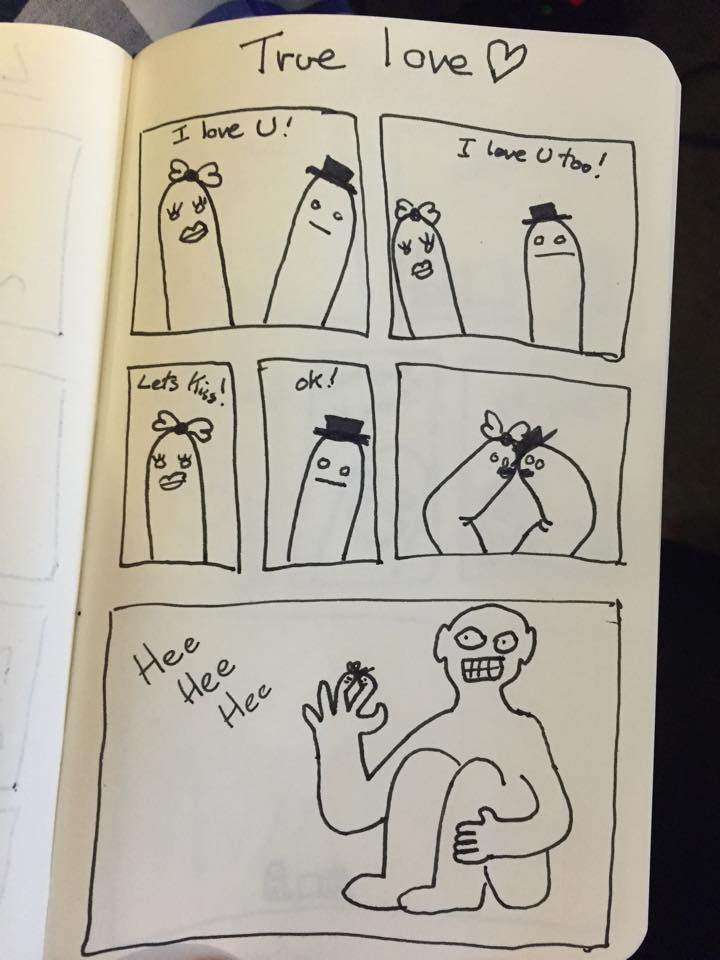 True love
I love U!
I love U too!
Lets Kiss!
OK!
Hee
Hee
Hee